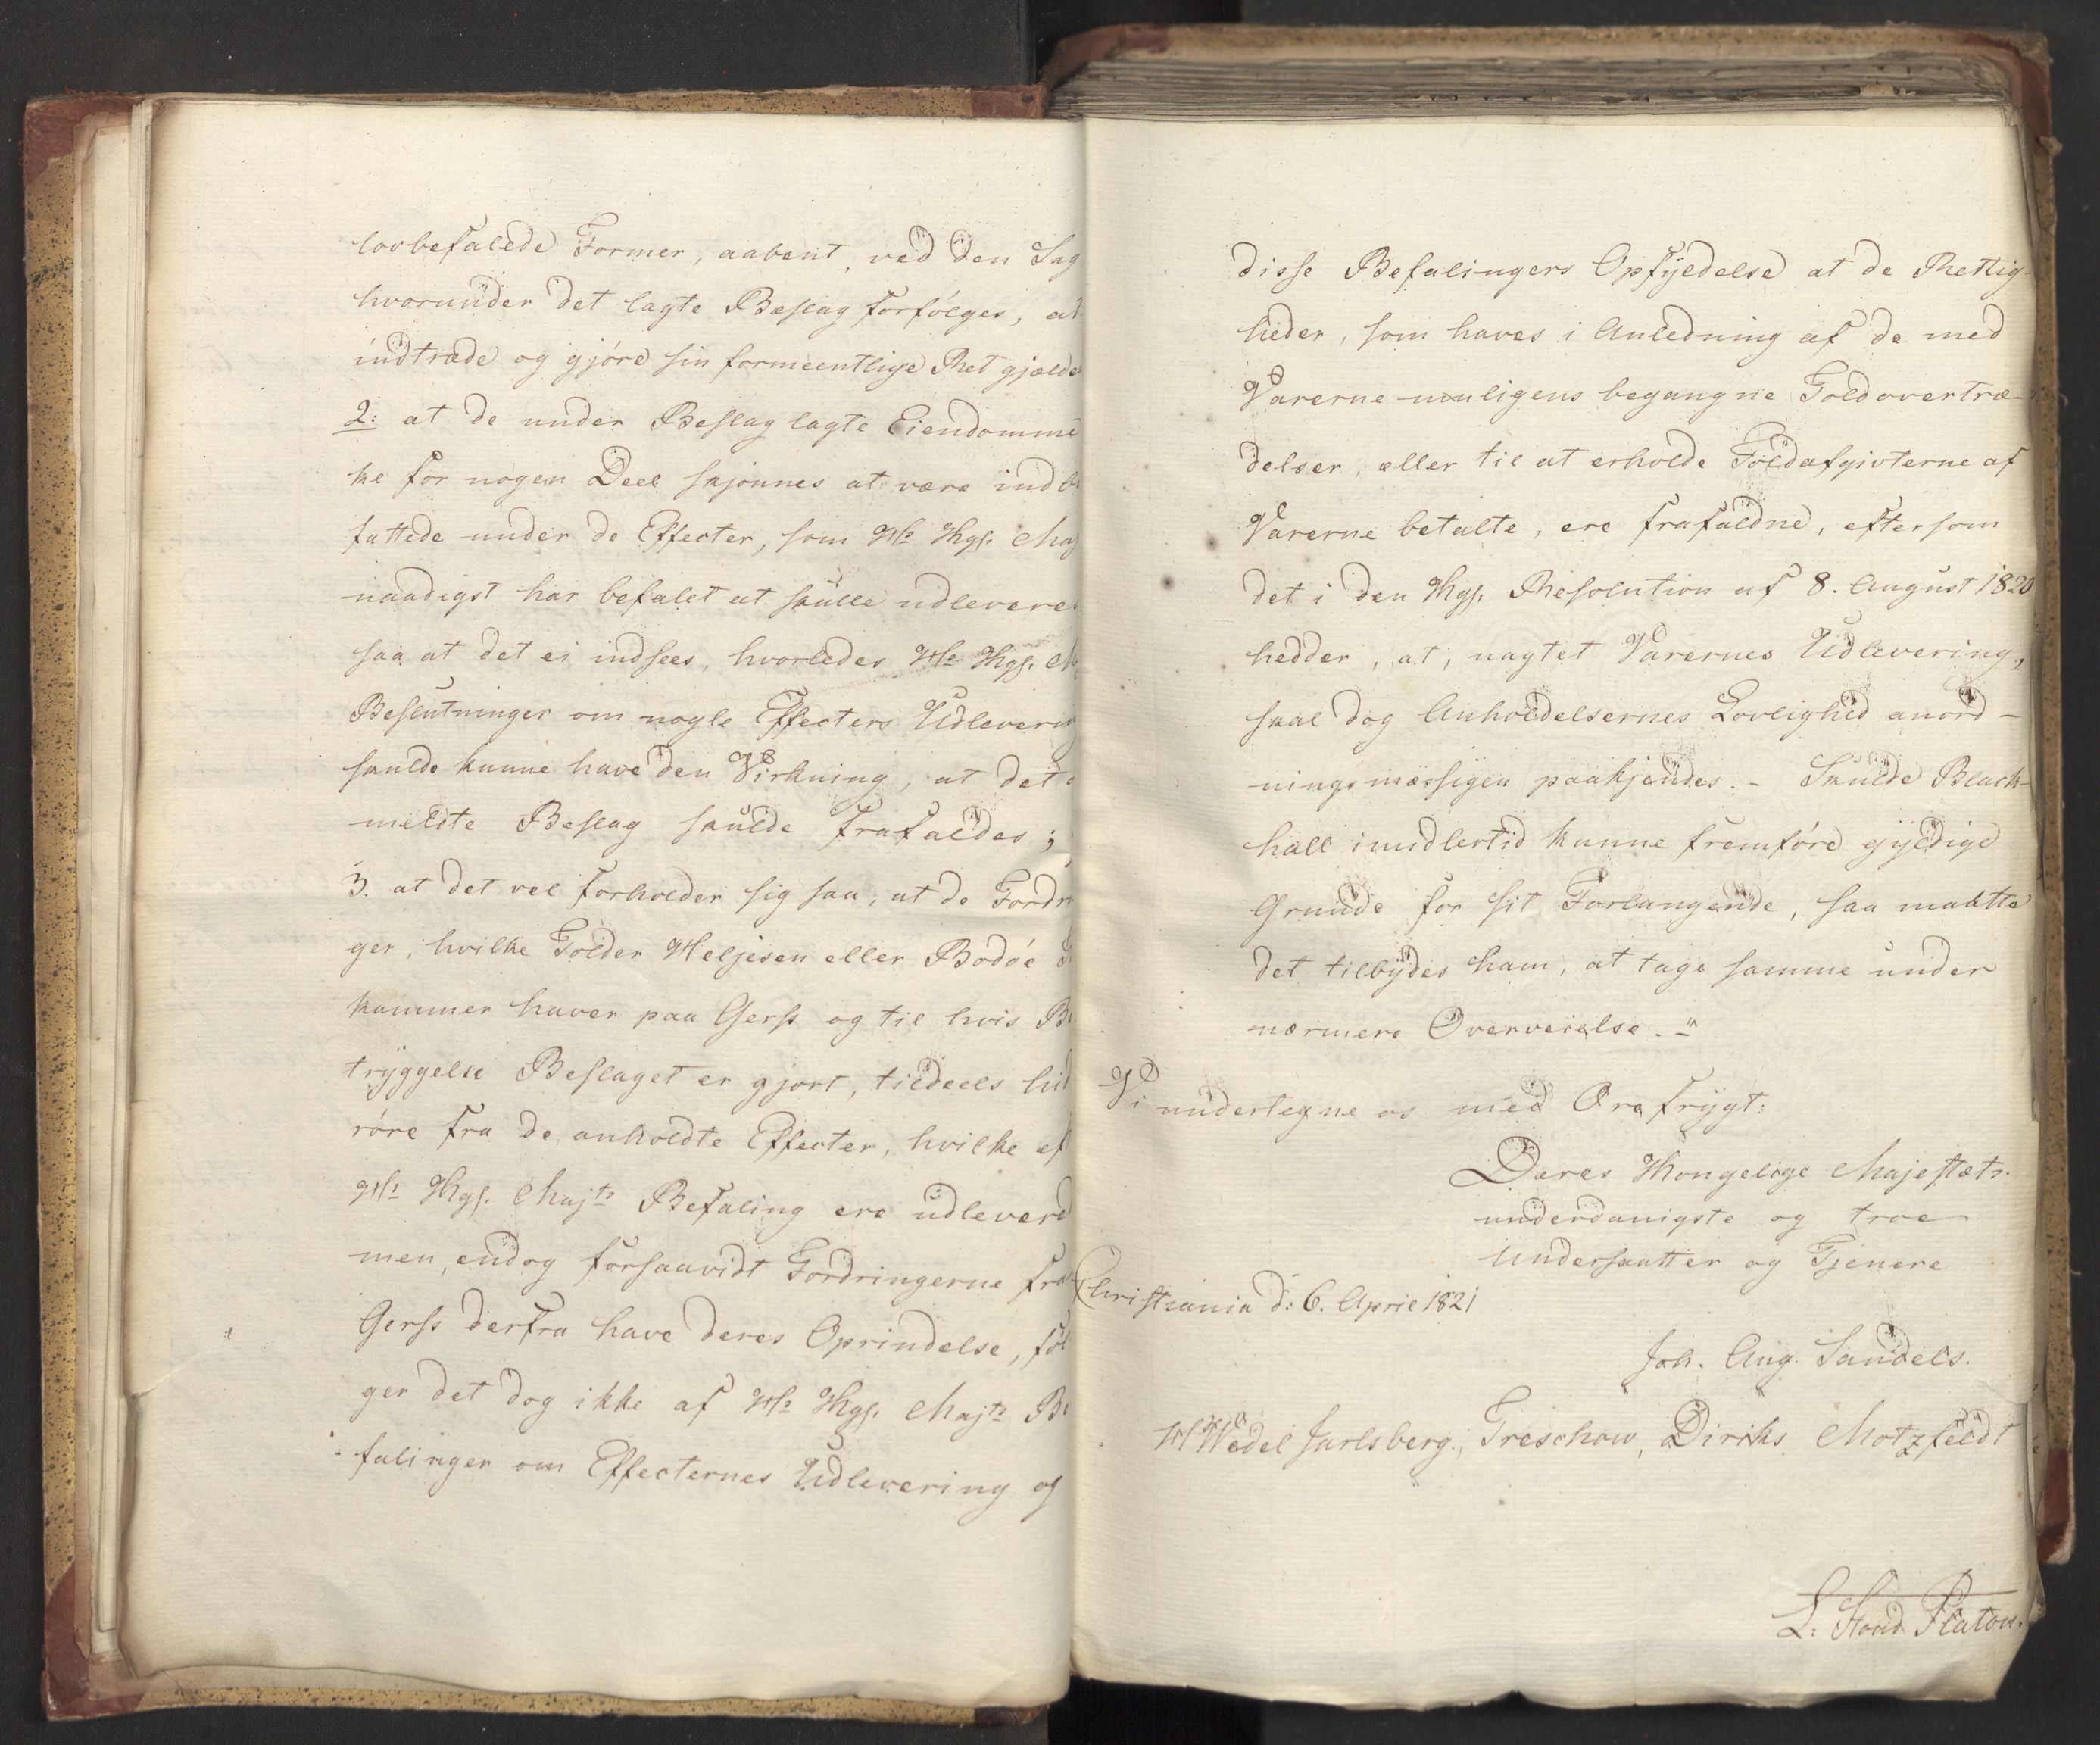 lovbefalede Former, aabent, ved den Sag
hvorunder det lagte Beslag forfølges, at
indtræde og gjøre sin formeentlige Ret gjælde
2: at de under Beslag lagte Eiendomme
ke for nogen Deel skjønnes at være indbe
fattede under de Effecter, som Hs Kgs. Maj
naadigst har befalet at skulle udleveres
saa at det ei indsees, hvorledes Hs Kgs. M
Beslutninger om nogle Effecters Udlevering
skulde kunne have den Virkning, at det o
meldte Beslag skulde frafaldes;
3. at det vel forholder sig saa, at de Fordri
ger, hvilke Tolder Heljesen eller Bodøe T
kammer haver paa Gerss og til hvis Be
tryggelse Beslaget er gjort, tildeels hid
røre fra de anholdte Effecter, hvilke ef
Hs Kgs. Majts Befaling ere udlevered
men, endog forsaavidt Fordringerne fra
Gerss derfra have deres Oprindelse, føl
ger det dog ikke af Hs Kgs. Majts Be
falinger om Effecternes Udlevering og
disse Befalingers Opfyldelse at de Rettig-
heder, som haves i Anledning af de med
Varerne muligens begangne Toldovertræ-
delser, eller til at erholde Toldafgivterne af
Varerne betalte, ere frafaldne, eftersom
det i den Kgs. Resolution af 8. August 1820
hedder, at, uagtet Varernes Udlevering,
skal dog Anholdelsernes Lovlighed anord-
ningsmæssigen paakjendes. - Skulde Black-
hall imidlertid kunne fremføre gyldige
Grunde for sit Forlangende, saa maatte
det tilbydes ham, at tage samme under
nærmere Overveielse."
Vi undertegne os med Ærefrygt:
Deres Kongelige Majestæts
underdanigste og troe
Undersaatter og Tjenere
Christiania d: 6. April 1821
Joh. Aug. Sandels.
H Wedel Jarlsberg, Treschow, Diriks Motzfeldt
L: Stoud Platou.